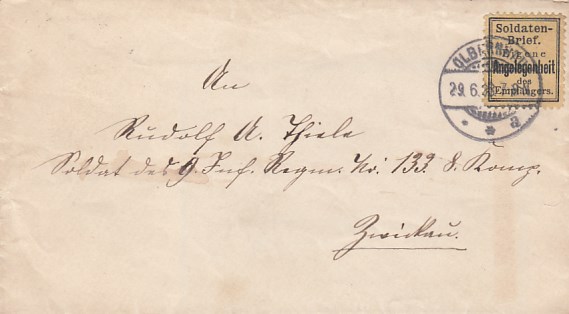 Soldaten-
Brief.
Eigene
Angelegenheit
des
Empfängers.
29.6.
a
An
Rudolf A. Thiele
Soldat des 9. Inf. Regm. Nr. 133. 8. Komp.
Zwickau.